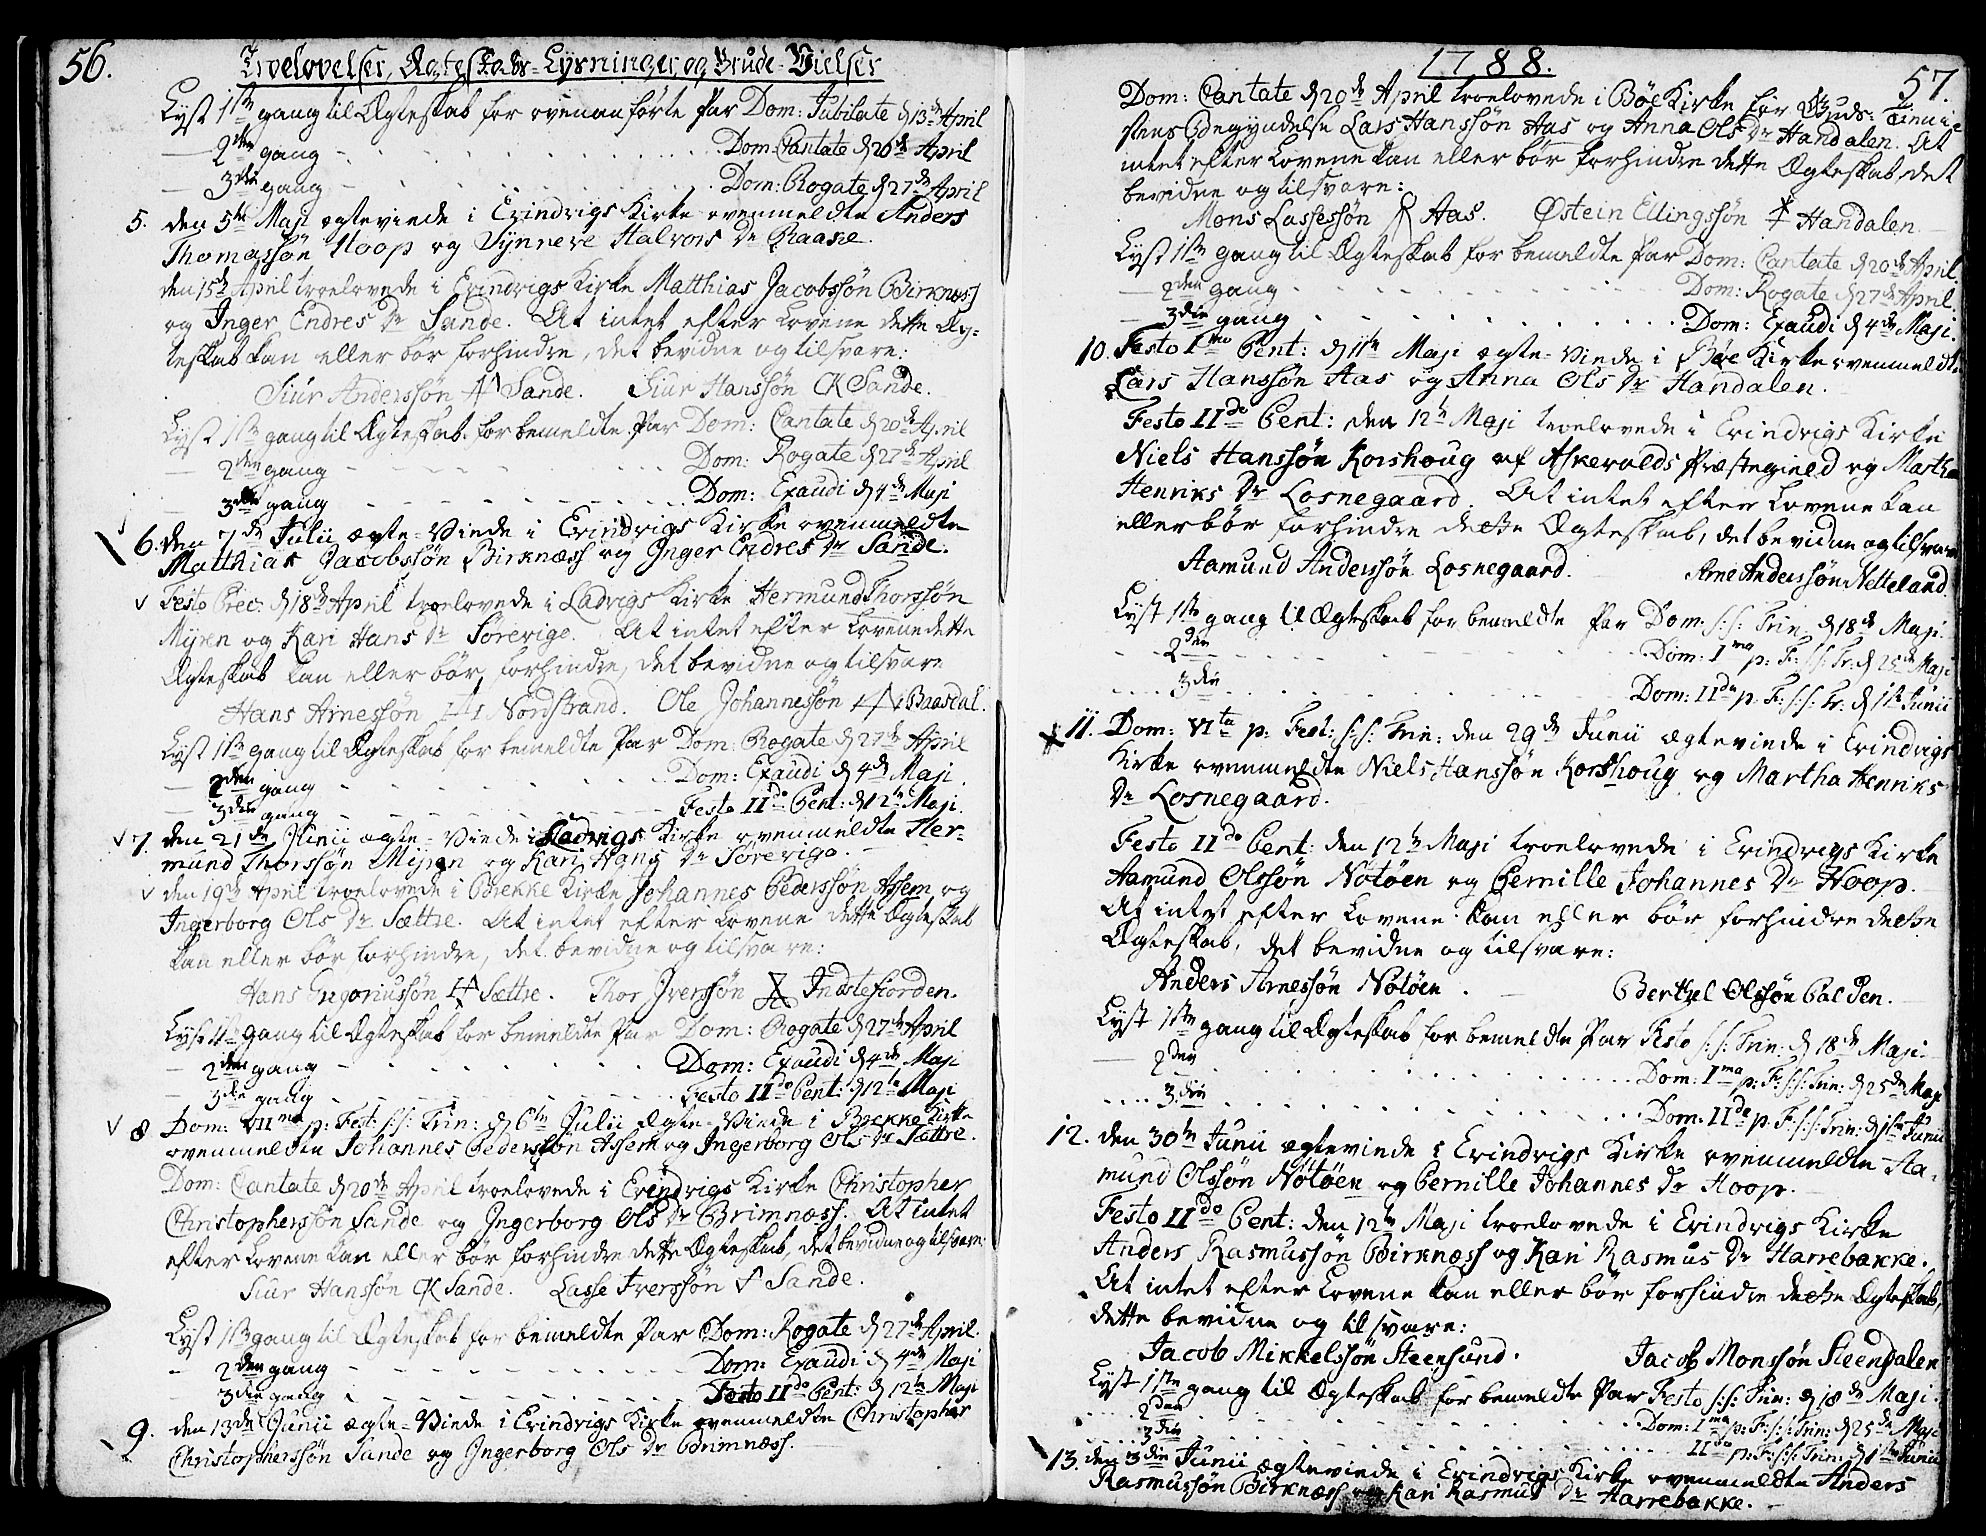 56.
Troelovelser, Ægteskabs-Lysninger og Brude-Vielser
Lyst 1ste gang til Ægteskab for ovenanførte Par Dom: Jubilate d 13de April
2den gang Dom: Cantate d 20de April
3die gang Dom: Rogate d 27de April
5. den 5te Maji ægteviede i Evindvigs Kirke ovenmeldte Anders
Thomassøn Hoop og Synneve Halvors Dr Raasæ.
den 15de April troelovede i Evindvigs Kirke Matthias Jacobssøn Birknæs
og Inger Endres Dr Sande. At intet efter Lovene dette Æg-
teskab kan eller bør forhindre, det bevidne og tilsvare:
Siur Anderssøn Sande. Siur Hanssøn Sande.
Lyst 1ste gang til Ægteskab for bemeldte Par Dom: Cantate d 20de April
2den gang Dom: Rogate d 27de April
3die gang Dom: Exaudi d 4de Maji
6. den 7de Julii ægte-Viede i Evindvigs Kirke ovenmeldte
Matthias Jacobssøn Birknæss og Inger Endres Dr Sande.
Festo Prec: d 18de April troelovede i Ladvigs Kirke Hermund Thorssøn
Myren og Kari Hans Dr Sørevige. At intet efter Lovene dette
Ægteskab kan eller bør forhindre, det bevidne og tilsvare
Hans Arnessøn Nordstrand. Ole Johannessøn Brasdal.
Lyst 1ste gang til Ægteskab for bemeldte Par Dom: Rogate d 27de April
2den gang Dom: Exaudi d 4de Maji
3die gang Festo IIdo Pent: d 12te Maji.
7. den 21de Junii ægte-Viede i Ladvigs Kirke ovenmeldte Her-
mund Thorssøn Myren og Kari Hans Dr Sørevige.
den 19de April troelovede i Brekke Kirke Johannes Pederssøn Assem og
Ingerborg Ols Dr Sættre. At intet efter Lovene dette Ægteskab
kan eller bør forhindre, det bevidne og tilsvare:
Hans Gregoriussøn Sættre. Thor Iverssøn Indrefiorden.
Lyst 1ste gang til Ægteskab for bemeldte Par Dom: Rogate d 27de April
2den gang Dom: Exaudi d 4de Maji
3die gang Festo IIdo Pent: d 12te Maji
8 Dom: VIIma p: Fest: s: s: Trin: d 6te Julii Ægte-Viede i Brekke Kirke
ovenmeldte Johannes Pederssøn Assem og Ingerborg Ols Dr Sættre.
Dom: Cantate d 20de April troelovede i Evindvigs Kirke Christopher
Christopherssøn Sande og Ingerborg Ols Dr Brimnæss. At intet
efter Lovene kan eller bør forhindre dette Ægteskab, det bevidne og tilsvare:
Siur Hanssøn Sande. Lasse Iverssøn Sande.
Lyst 1ste gang til Ægteskab for bemeldte Par Dom: Rogate d 27de April.
2den gang Dom: Exaudi d 4de Maji
3die gang Festo IIdo Pent: d 12te Maji
9. den 13de Junii ægte-Viede i Evindvigs Kirke ovenmeldte Christopher
Christopherssøn Sande og Ingerborg Ols Dr Brimnæss.
1788.
57.
Dom: Cantate d 20de April troelovede i Bøe Kirke før Guds-Tieni-
stens Begyndelse Lars Hanssøn Aas og Anna Ols Dr Handalen. At
intet efter Lovene kan eller bør forhindre dette Ægteskab det
bevidne og tilsvare:
Mons Lassessøn Aas. Østein Ellingssøn Handalen.
Lyst 1ste gang til Ægteskab for bemeldte Par Dom: Cantate d 20de April
2den gang Dom: Rogate d 27de April.
3die gang Dom: Exaudi d 4de Maji.
10. Festo Imo Pent: d 11te Maji ægte-Viede i Bøe Kirke ovenmeldte
Lars Hanssøn Aas og Anna Ols Dr Handalen.
Festo IIdo Pent: den 12te Maji troelovede i Evindvigs Kirke
Niels Hanssøn Korshoug af Askevolds Præstegield og Martha
Henriks Dr Losnegaard. At intet efter Lovene kan
eller bør forhindre dette Ægteskab, det bevidne og tilsvare
Aamund Anderssøn Losnegaard. Arne Anderssøn Netteland.
Lyst 1ste gang til Ægteskab for bemeldte Par Dom: s: s: Trin: d 18de Maji.
2den Dom: Ima p: F: s: s: Tr: d 25de Maji
3die Dom: IIda p: F: s: s: Tr: d 1ste Junii
11. Dom: VIta p: Fest: s: s: Trin: den 29de Junii ægteviede i Evindvigs
Kirke ovenmeldte Niels Hanssøn Korshoug og Martha Henriks
Dr Losnegaard.
Festo IIdo Pent: den 12te Maji troelovede i Evindvigs Kirke
Aamund Olssøn Nøtøen og Pernille Johannes Dr Hoop.
At intet efter Lovene kan eller bør forhindre dette
Ægteskab, det bevidne og tilsvare:
Anders Arnessøn Nøtøen. Berthel Olssøn Palden.
Lyst 1ste gang til Ægteskab for bemeldte Par Festo s: s: Trin: d 18de Maji.
2den Dom: Ima p: F: s: s: Trin: d 25de Maji
3die Dom: IIda p: F: s: s: Trin: d 1ste Junii
12. den 30te Junii ægteviede i Evindvigs Kirke ovenmeldte Aa-
mund Olssøn Nøtøen og Pernille Johannes Dr Hoop.
Festo IIdo Pent: den 12te Maji troelovede i Evindvigs Kirke
Anders Rasmussøn Birknæss og Kari Rasmus Dr Harrebakke.
At intet efter Lovene kan eller bør forhindre dette Ægteskab,
dette bevidne og tilsvare:
Jacob Mikkelssøn Steensund. Jacob Monssøn Steendalen
Lyst 1ste gang til Ægteskab for bemeldte Par Festo s: s: Trin: d 18de Maji.
2den Dom: Ima p: F: s: s: Trin: d 25de Maji
3die IIda p: F: s: s: Trin: d 1ste Junii
13. den 3die Junii ægteviede i Evindvigs Kirke ovenmeldte Anders
Rasmussøn Birknæss og Kari Rasmus Dr Harrebakke.